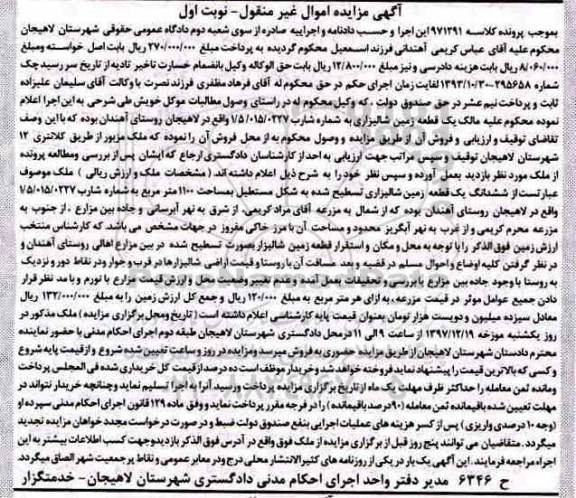 آگهی مزایده اموال غیر منقول- نوبت اول
بموجب پرونده کلاسه ۹۷۱۳۹۱ این اجرا و حسب دادنامه و اجراییه صادره از سوی شعبه دوم دادگاه عمومی حقوقی شهرستان لاهیجان
محکوم علیه آقای عباس کریمی آهندانی فرزند اسمعیل محکوم گردیده به پرداخت مبلغ ۲۷۰/۰۰۰/۰۰۰ ریال بابت اصل خواسته ومبلغ
۸/۰۶۰/۰۰۰ ریال بابت هزینه دادرسی و نیز مبلغ ۱۲/۸۰۰/۰۰۰ ریال بابت حق الوکاله وکیل بانضمام خسارت تاخیر تادیه از تاریخ سررسید چک
شماره ۲۹۵۶۵۸-۱۳۹۳/۱۰/۳۰ لغایت زمان اجرای حکم در حق محکوم له آقای فرهاد مظفری فرزند نصرت با وکالت آقای سلیمان علیزاده
ثابت و پرداخت نیم عشر در حق صندوق دولت ، که وکیل محکوم له در راستای وصول مطالبات موکل خویش طی شرحی به این اجرا اعلام
نموده محکوم علیه مالک یک قطعه زمین شالیزاری به شماره شارب ۱/۵/۰۱۵/۰۲۲۷ واقع در لاهیجان روستای آهندان بوده که با این وصف
تقاضای توقیف و ارزیابی و فروش آن از طریق مزایده و وصول محکوم به از محل فروش آن را نموده که ملک مزبور از طریق کلانتری ۱۲
شهرستان لاهیجان توقیف و سپس مراتب جهت ارزیابی به احد از کارشناسان دادگستری ارجاع که ایشان پس از بررسی ومطالعه پرونده
از ملک مورد نظر بازدید بعمل آورده و سپس نظر خود را به شرح ذیل اعلام داشته اند. ( مشخصات ملک و ارزش ریالی ) ملک موصوف
عبارتست از ششدانگ یک قطعه زمین شالیزاری تسطیح شده به شکل مستطیل بمساحت ۱۱۰۰ متر مربع به شماره شارب ۱/۵/۰۱۵/۰۲۲۷
واقع در لاهیجان روستای آهندان بوده که از شمال به مزرعه آقای مراد کریمی، از شرق به نهر آبرسانی و جاده بین مزارع ، از جنوب به
مزرعه محرم کریمی و از غرب به نهر آبگریز محدود و مساحت آن با مرز خاکی مفروز در جهات مشخص می باشد که کارشناس منتخب
ارزش زمین فوق الذکر را با توجه به محل و مکان و استقرار قطعه زمین شالیزار بصورت تسطیح شده در بین مزارع اهالی روستای آهندان و
در نظر گرفتن کلیه اوضاع و احوال مسلم در قضیه و بعد مسافت آن با روستا و قیمت اراضی شالیزارها در قرب و جوار ودر نقاط دور و نزدیک
به روستا با وجود جاده بین مزارع با بررسی و تحقیقات بعمل آمده وعدم تغییر وضعیت محل و ارزش قیمت مزارع با تورم و با مد نظر قرار
دادن جمیع عوامل موثر در قیمت مزرعه، به ازای هر متر مربع به مبلغ ۱۲۰/۰۰۰ ریال و جمع کل ارزش زمین را به مبلغ ۱۳۲/۰۰۰/۰۰۰ ریال
معادل سیزده میلیون و دویست هزار تومان بعنوان قیمت پایه کارشناسی اعلام داشته است ( تاریخ ومحل برگزاری مزایده ) ملک مذکور در
روز یکشنبه مورخه ۱۳۹۷/۱۲/۱۹ از ساعت ۹ الی ۱۱ درمحل دادگستری شهرستان لاهیجان طبقه دوم اجرای احکام مدنی با حضور نماینده
محترم دادستان شهرستان لاهیجان از طریق مزایده حضوری به فروش میرسد ومزایده در روز و ساعت تعیین شده شروع و از قیمت پایه شروع
و کسی که بالاترین قیمت را پیشنهاد نماید فروخته خواهد شد و خریدار موظف است ده درصد از قیمت کل خریداری شده فی المجلس پرداخت
و مانده ثمن معامله را حداکثر ظرف مهلت یک ماه از تاریخ برگزاری مزایده پرداخت و رسید آنرا به اجرا تسلیم نماید وچنانچه خریدار نتواند در
مهلت تعیین شده باقیمانده ثمن معامله (۹۰درصد باقیمانده ) را در فرجه مقرر پرداخت نماید و وفق ماده ۱۲۹ قانون اجرای احکام مدنی سپرده او
(وجه ۱۰ درصدی واریزی ) پس از کسر هزینه های عملیات اجرایی بنفع صندوق دولت ضبط و در صورت درخواست مجدد خواهان مزایده تجدید
میگردد. متقاضیان می توانند پنج روز قبل از برگزاری مزایده از ملک فوق واقع در آدرس فوق الذکر بازدید وجهت کسب اطلاعات بیشتر به این
اجراء مراجعه فرمایند. این آگهی یک بار در یکی از روزنامه های کثیر الانتشار محلی درج ودر معابر عمومی و نقاط پر جمعیت شهر الصاق میگردد.
ح ۶۳۴۶ مدیر دفتر واحد اجرای احکام مدنی دادگستری شهرستان لاهیجان- خدمتگزار